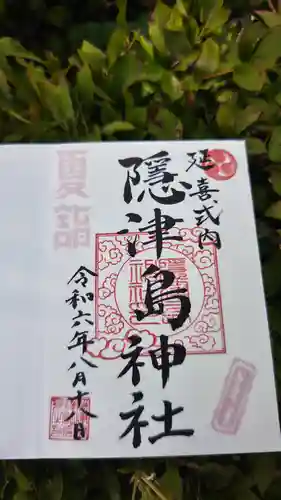 延喜式内
隠津島神社
夏詣
令和六年八月十八日